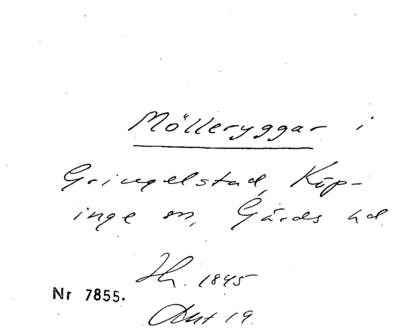 Mölleryggar i
Gringelstad, Köp-
inge sn, Gärds hd
Hh. 1845
Nr 7855.
Akt 19